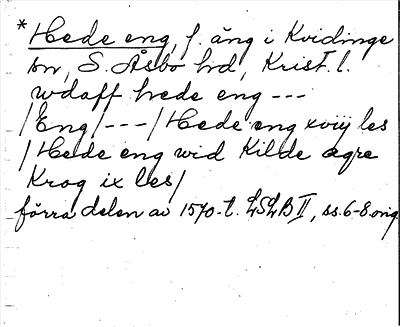 * Hede eng, f. äng i Kvidinge
sn, S. Åsbo hd, Krist. l.
wdaff hede eng ---
/Eng/---/Hede eng xviij les
/Hede eng wid Kilde agre
Krog ix les/
förra delen av 1570-t. LSLB II, ss. 6-8. orig.